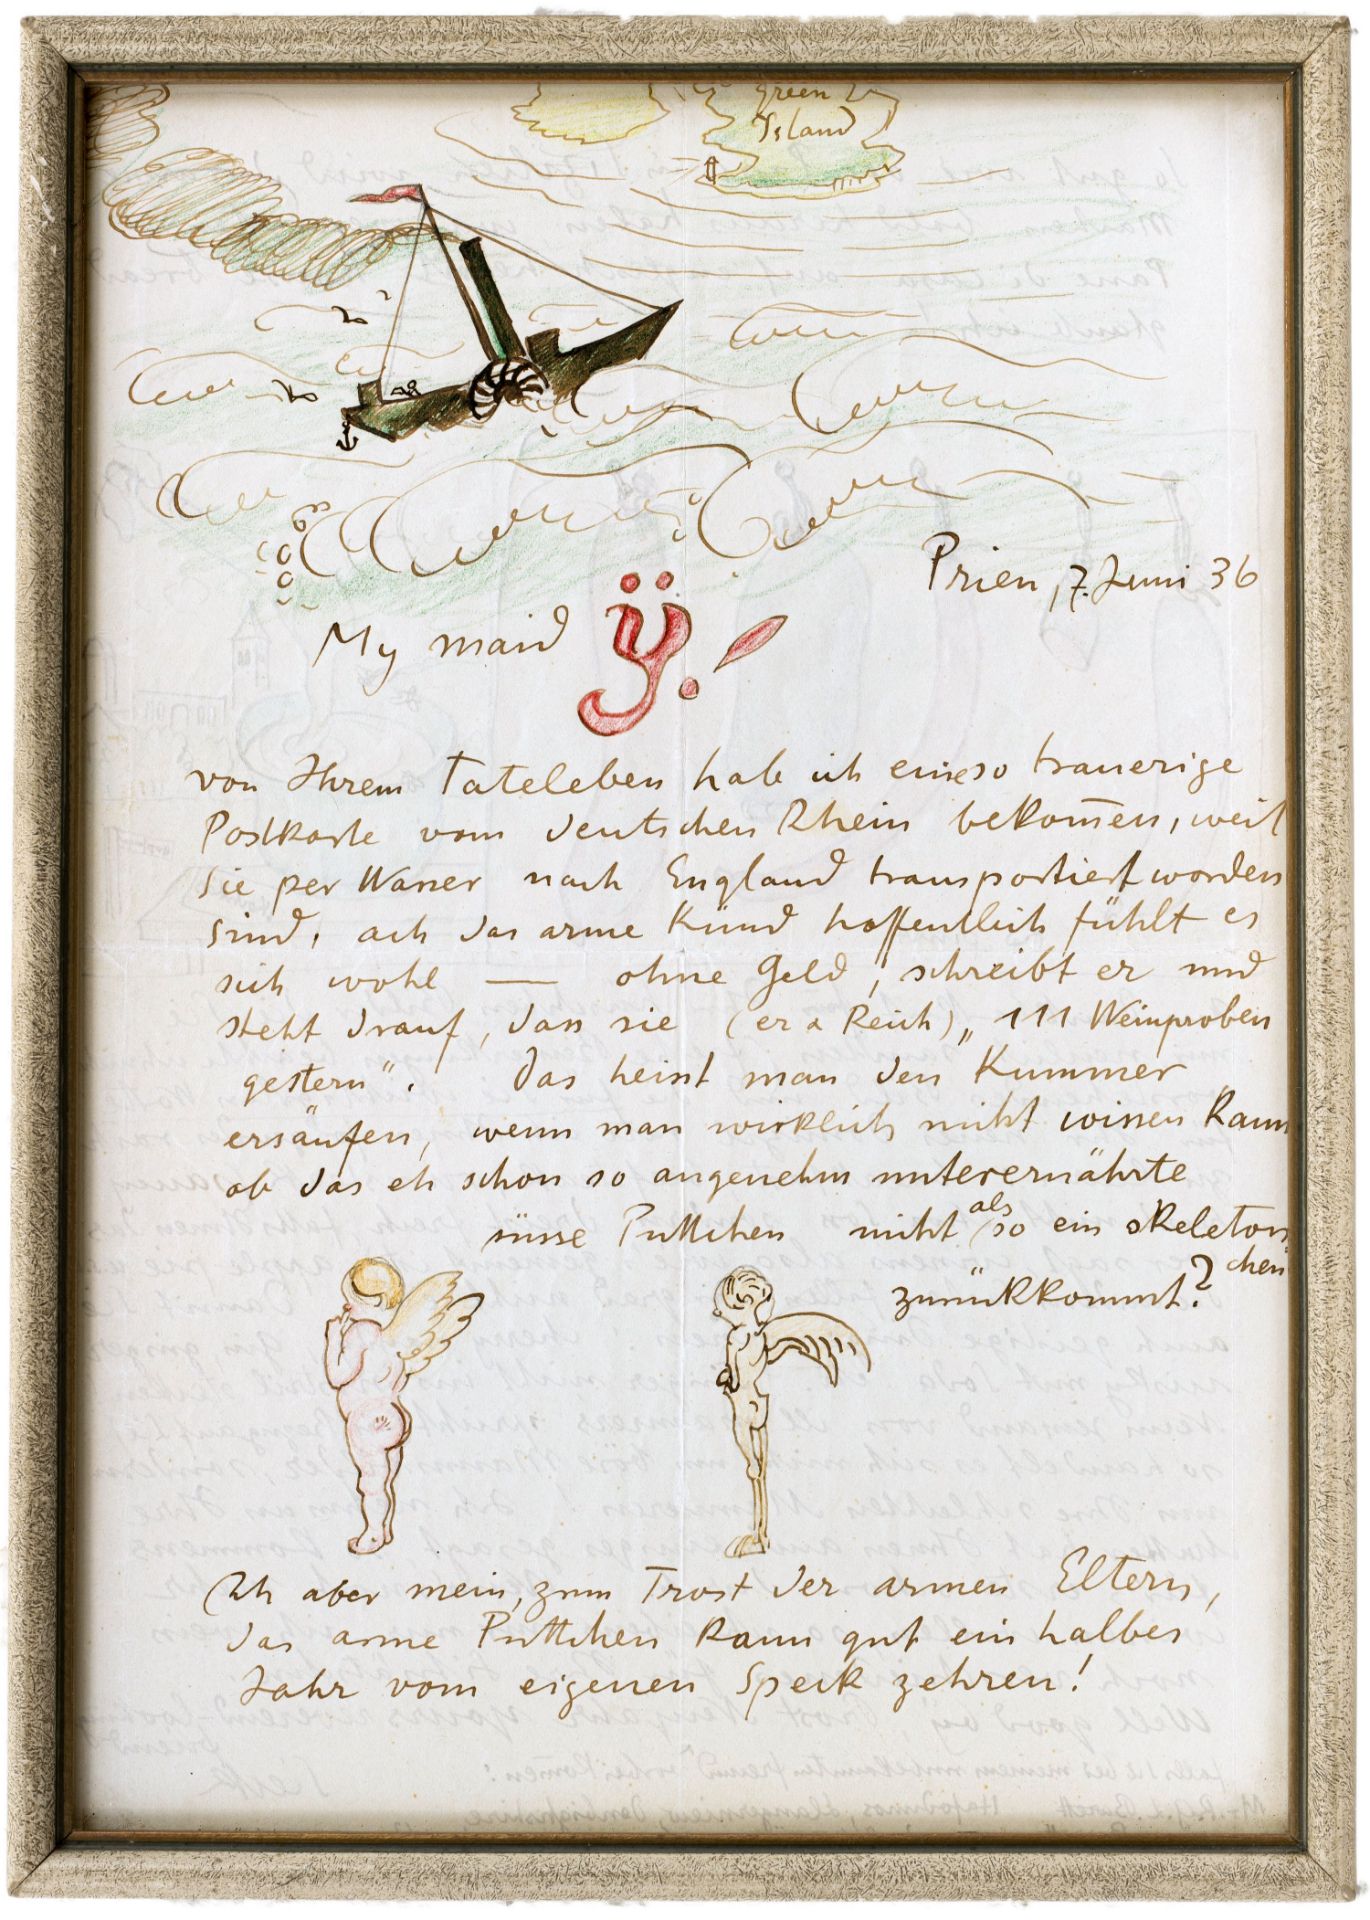 green
Island
Prien, 7. Juni 36
My maid ÿ!
von Ihrem Tateleben hab ich eine so trauerige
Postkarte vom deutschen Rhein bekom̅en, weil
sie per Wasser nach England transportiert worden
sind, ach das arme Künd hoffentlich fühlt es
sich wohl — ohne Geld, schreibt er und
steht drauf, dass sie (er & Reich) „111 Weinproben
gestern“. Das heisst man den Kummer
ersäufen, wenn man wirklich nicht wissen kann
ob das eh schon so angenehm unterernährte
süsse Puttchen nicht als so ein skeleton
chen
zurükkommt?
Ich aber mein, zum Trost der armen Eltern,
das arme Puttchen kann gut ein halbes
Jahr vom eigenen Speck zehren!